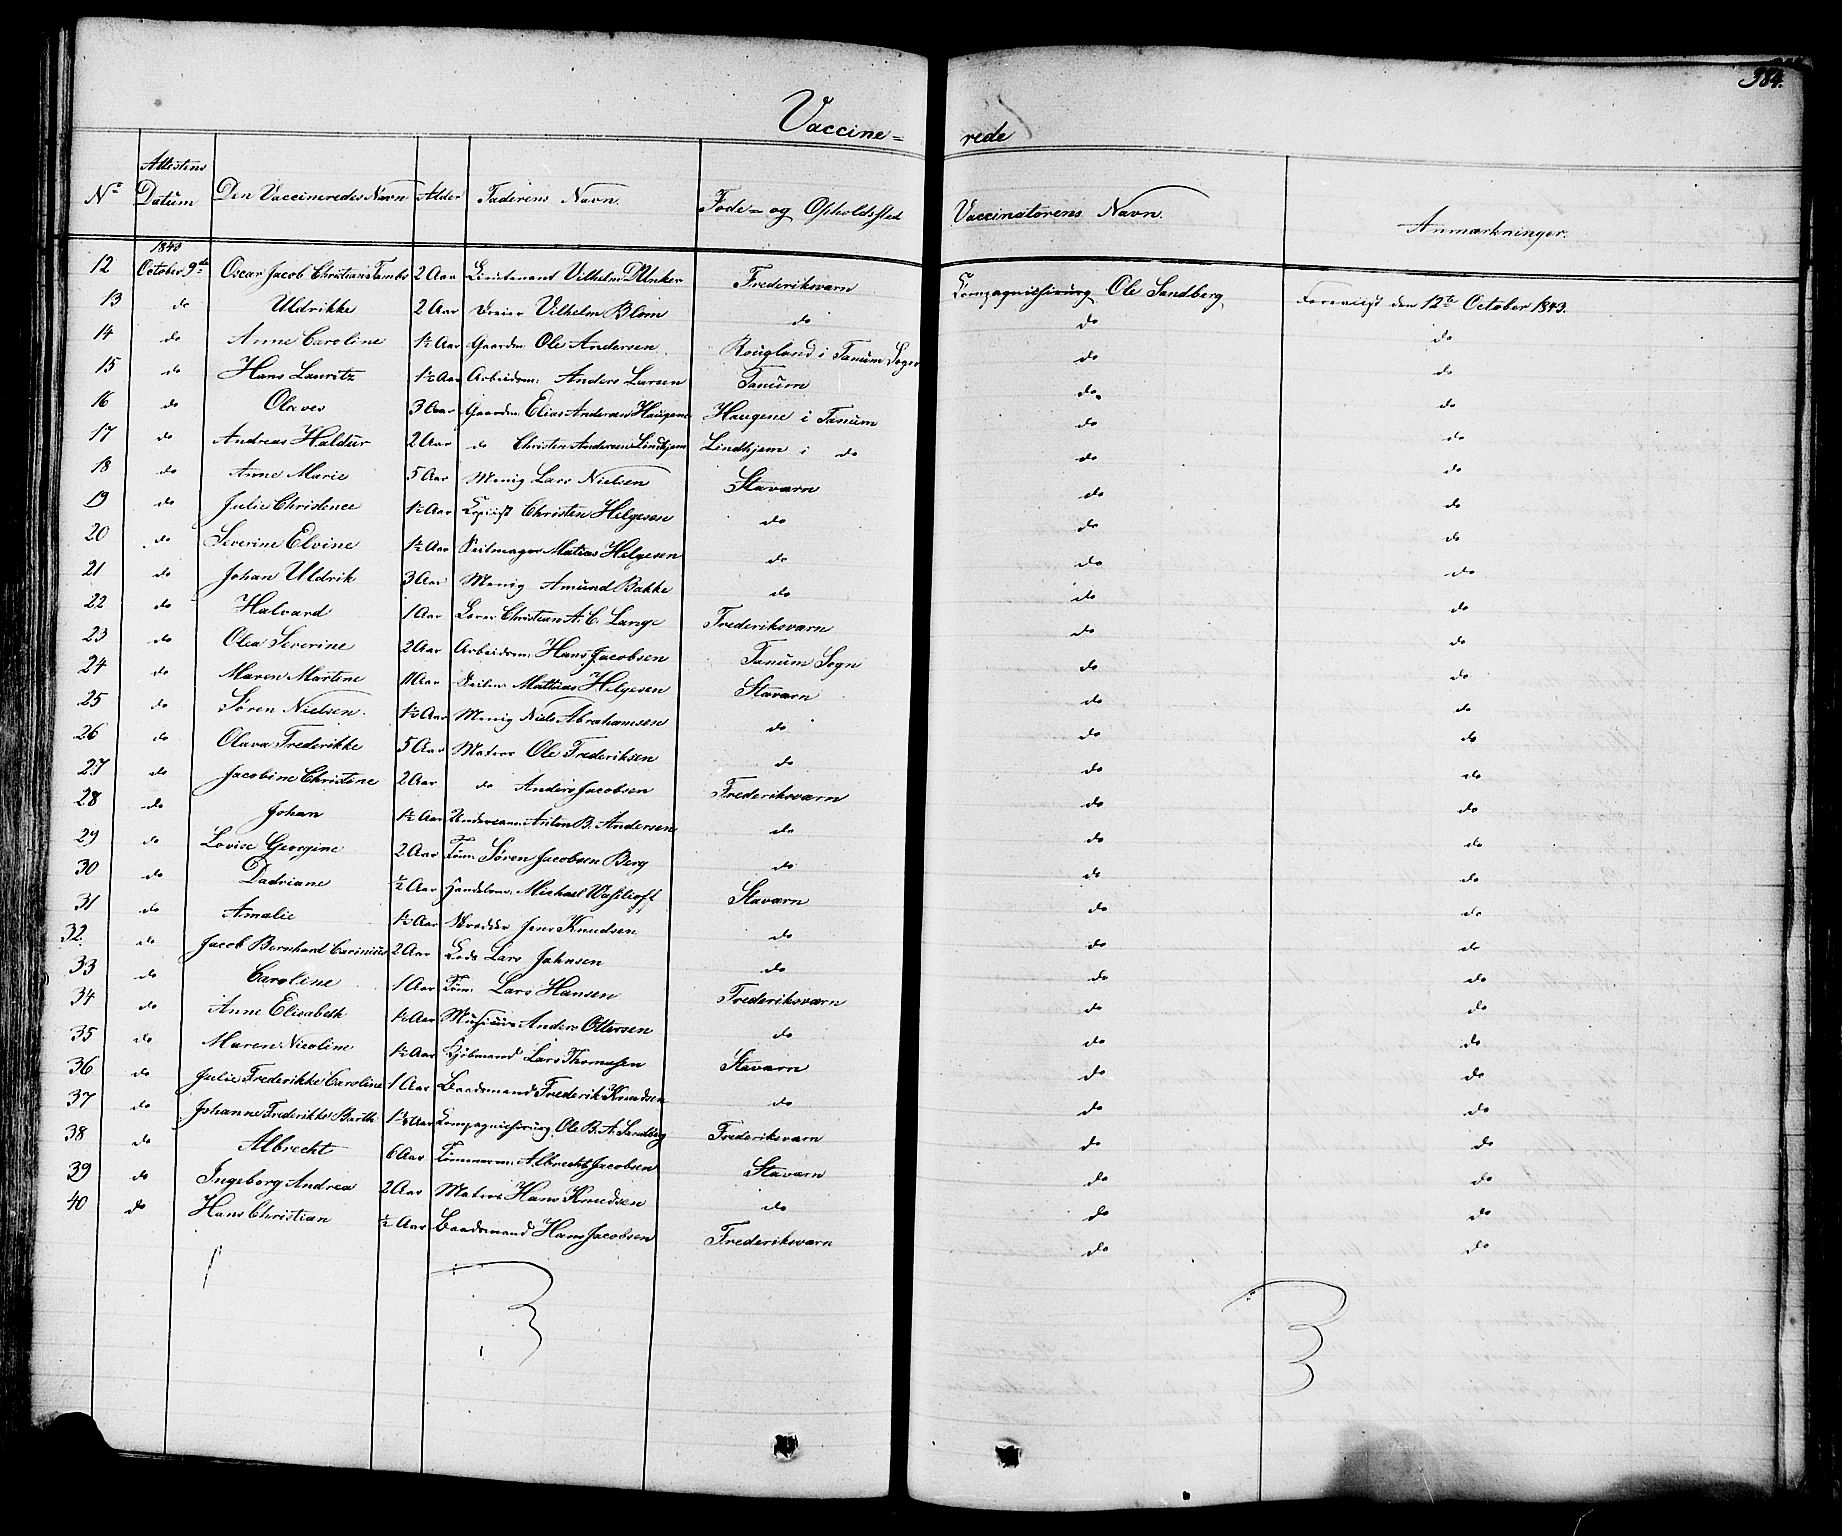 384.
Vaccine= rede
No Attestens Datum Den Vaccineredes Navn Alder Faderens Navn. Føde= og Opholdssted Vaccinatorens Navn. Anmærkninger.
1843
12 October 9de Oscar Jacob Christians Tambs 2 Aar Lieutenant Vilhelm Frederiksværn Kompagnichirurg Ole Sandberg Foreviist den 12te October 1843.
13 do Uldrikke 2 Aar Dreier Vilhelm Blom do do do
14 do Anne Caroline 1½ Aar Gaardm. Ole Andersen Rougland i Tanum Sogn do do
15 do Hans Lauritz 1½ Aar Arbeidsm: Anders Larsen Tanum do. do
16 do Olaves 3 Aar Gaardm. Elias Andersen Haugene Haugene i Tanum do do
17 do Andreas Haldur 2 Aar do Christen Andersen Lindhjem Lindhjem i do do do
18 do Anne Marie 5 Aar Menig Lars Nielsen Staværn do do
19 do Julie Christence 1½ Aar Kopiist Christen Helgesen do do do
20 do Severine Elvine 1½ Aar Seilmager Matias Helgesen do do do
21 do Johan Uldrik 3 Aar Menig Amund Bakke do do do
22 do Halvard 1 Aar Christian A. C. Lange Frederiksværn do do
23 do Olea Severine 2 Aar Arbeidsm: Hans Jacobsen Tanum Sogn do do
24 do Maren Martine 11 Aar Seilm. Mathias Helgesen Staværn do do
25 do Søren Nielsen. 1½ Aar Menig Niels Abrahamsen do do do
26 do Olava Frederikke 5 Aar Matros Ole Frederiksen do do do
27 do Jacobine Christine 2 Aar do Anders Jacobsen Frederiksværn do do
28 do Johan 1½ Aar Anton B. Andersen do do do
29 do Lovise Georgine 2 Aar Tøm. Søren Jacobsen Berg do do do
30 do Dadriane ½ Aar Handelsm. Michael Staværn do do
31 do Amalie 1½ Aar Skredder Jens Knudsen do do do
32. do Jacob Bernhard Carinius 2 Aar Lods Lars Johnsen do do do
33 do Caroline 1 Aar Tøm. Lars Hansen Frederiksværn do do
34 do Anne Elisabeth 1½ Aar Musicus Anders Ottersen do do do
35 do Maren Nicoline 1½ Aar Kjøbmand Lars Thomesen Staværn do do
36 do Julie Frederikke Caroline 1 Aar Baadsmand Frederik Knudsen do do do
37 do Johanne Frederikke Barth Aar Kompagnichirurg Ole B. A. Sandberg Frederiksværn do do
38 do Albrecht 6 Aar Tømmerm: Albrecht Jacobsen Staværn do do
39 do Ingeborg Andrea 2 Aar Matros Hans Knudsen do do do
40 do Hans Christian ½ Aar Baadsmand Hans Jacobsen Frederiksværn do do